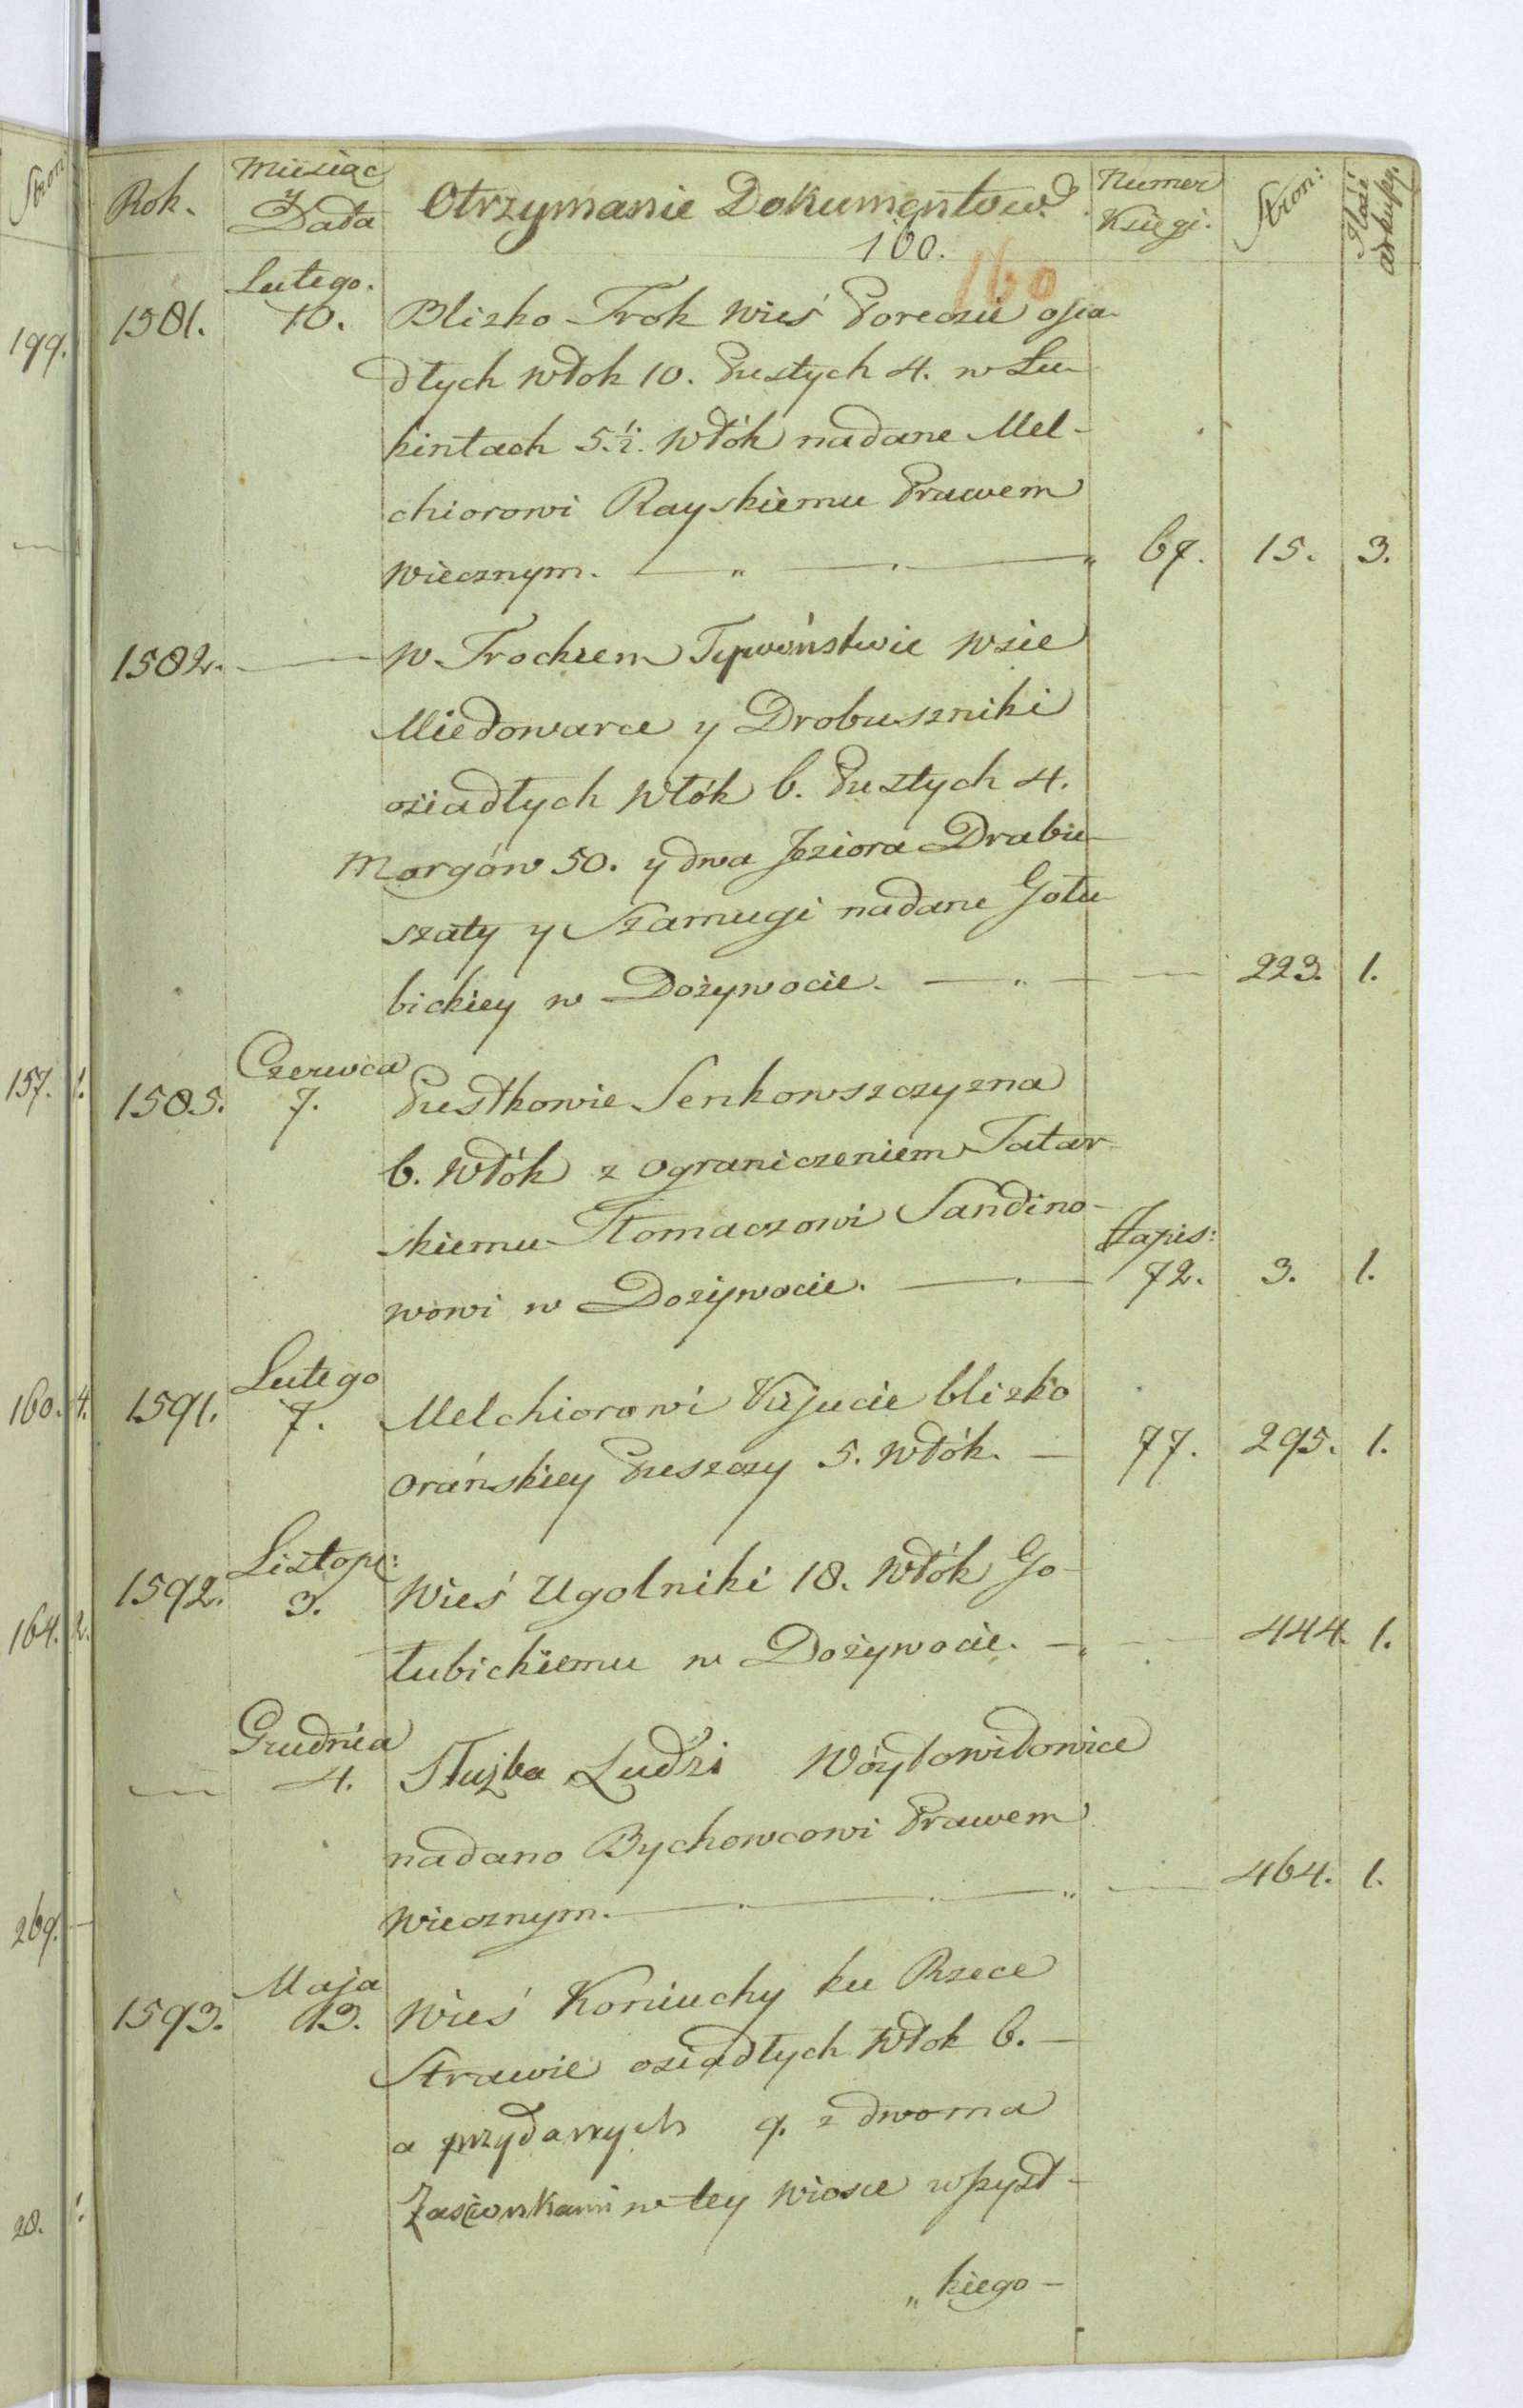 Stron:
Rok.
Miesiąc
y
Data
Otrzymanie Dokumentow.
Numer
Księgi.
Stron:
Ilość
arkuszy.
160.
160
199.
1581.
Lutego.
10.
Blizko Trok Wieś Porecze osia-
dłych włok 10. Pustych 4. w Łu-
kintach 5. i. Włók nadane Mel-
chiorowi Rayskiemu Prawem
wiecznym. 67. 15. 3.
1582. W Trockiem Tywóństwie Wsie
Miedowarce y Drobuszniki
osiadłych Włók 6. Pustych 4.
Morgów 50. y dwa Jeziora Drabu-
szaty y Szarnugi nadane Gołu-
bickiey w Dożywocie. 223. 1.
157. 1.
1585.
Czerwca
7.
Pustkowie Senkowszczyzna
6. Włók z ograniczeniem Tatar-
skiemu Tłomaczowi Sandino-
wowi w Dożywocie.
Zapis:
72. 3. 1.
160. 4.
1591.
Lutego
7.
Melchiorowi Kijucie blizko
Orańskiey Puszczy 5. Włók. 77. 295. 1.
1592.
Listop:
3.
Wieś Ugolniki 18. Włók Go-
łubickiemu w Dożywocie. 444. 1.
164. 2.
Grudnia
4.
Służba Ludzi Wóydowidowice
nadano Bychowcowi Prawem
wiecznym. 464. 1.
269.
1593.
Maja
13.
Wieś Koniuchy ku Rzece
Strawie osiadłych Włok 6.
a przydanych 9. z dwoma
Zaścionkami w tey wiosce wszyst-
28. 1.
„kiego